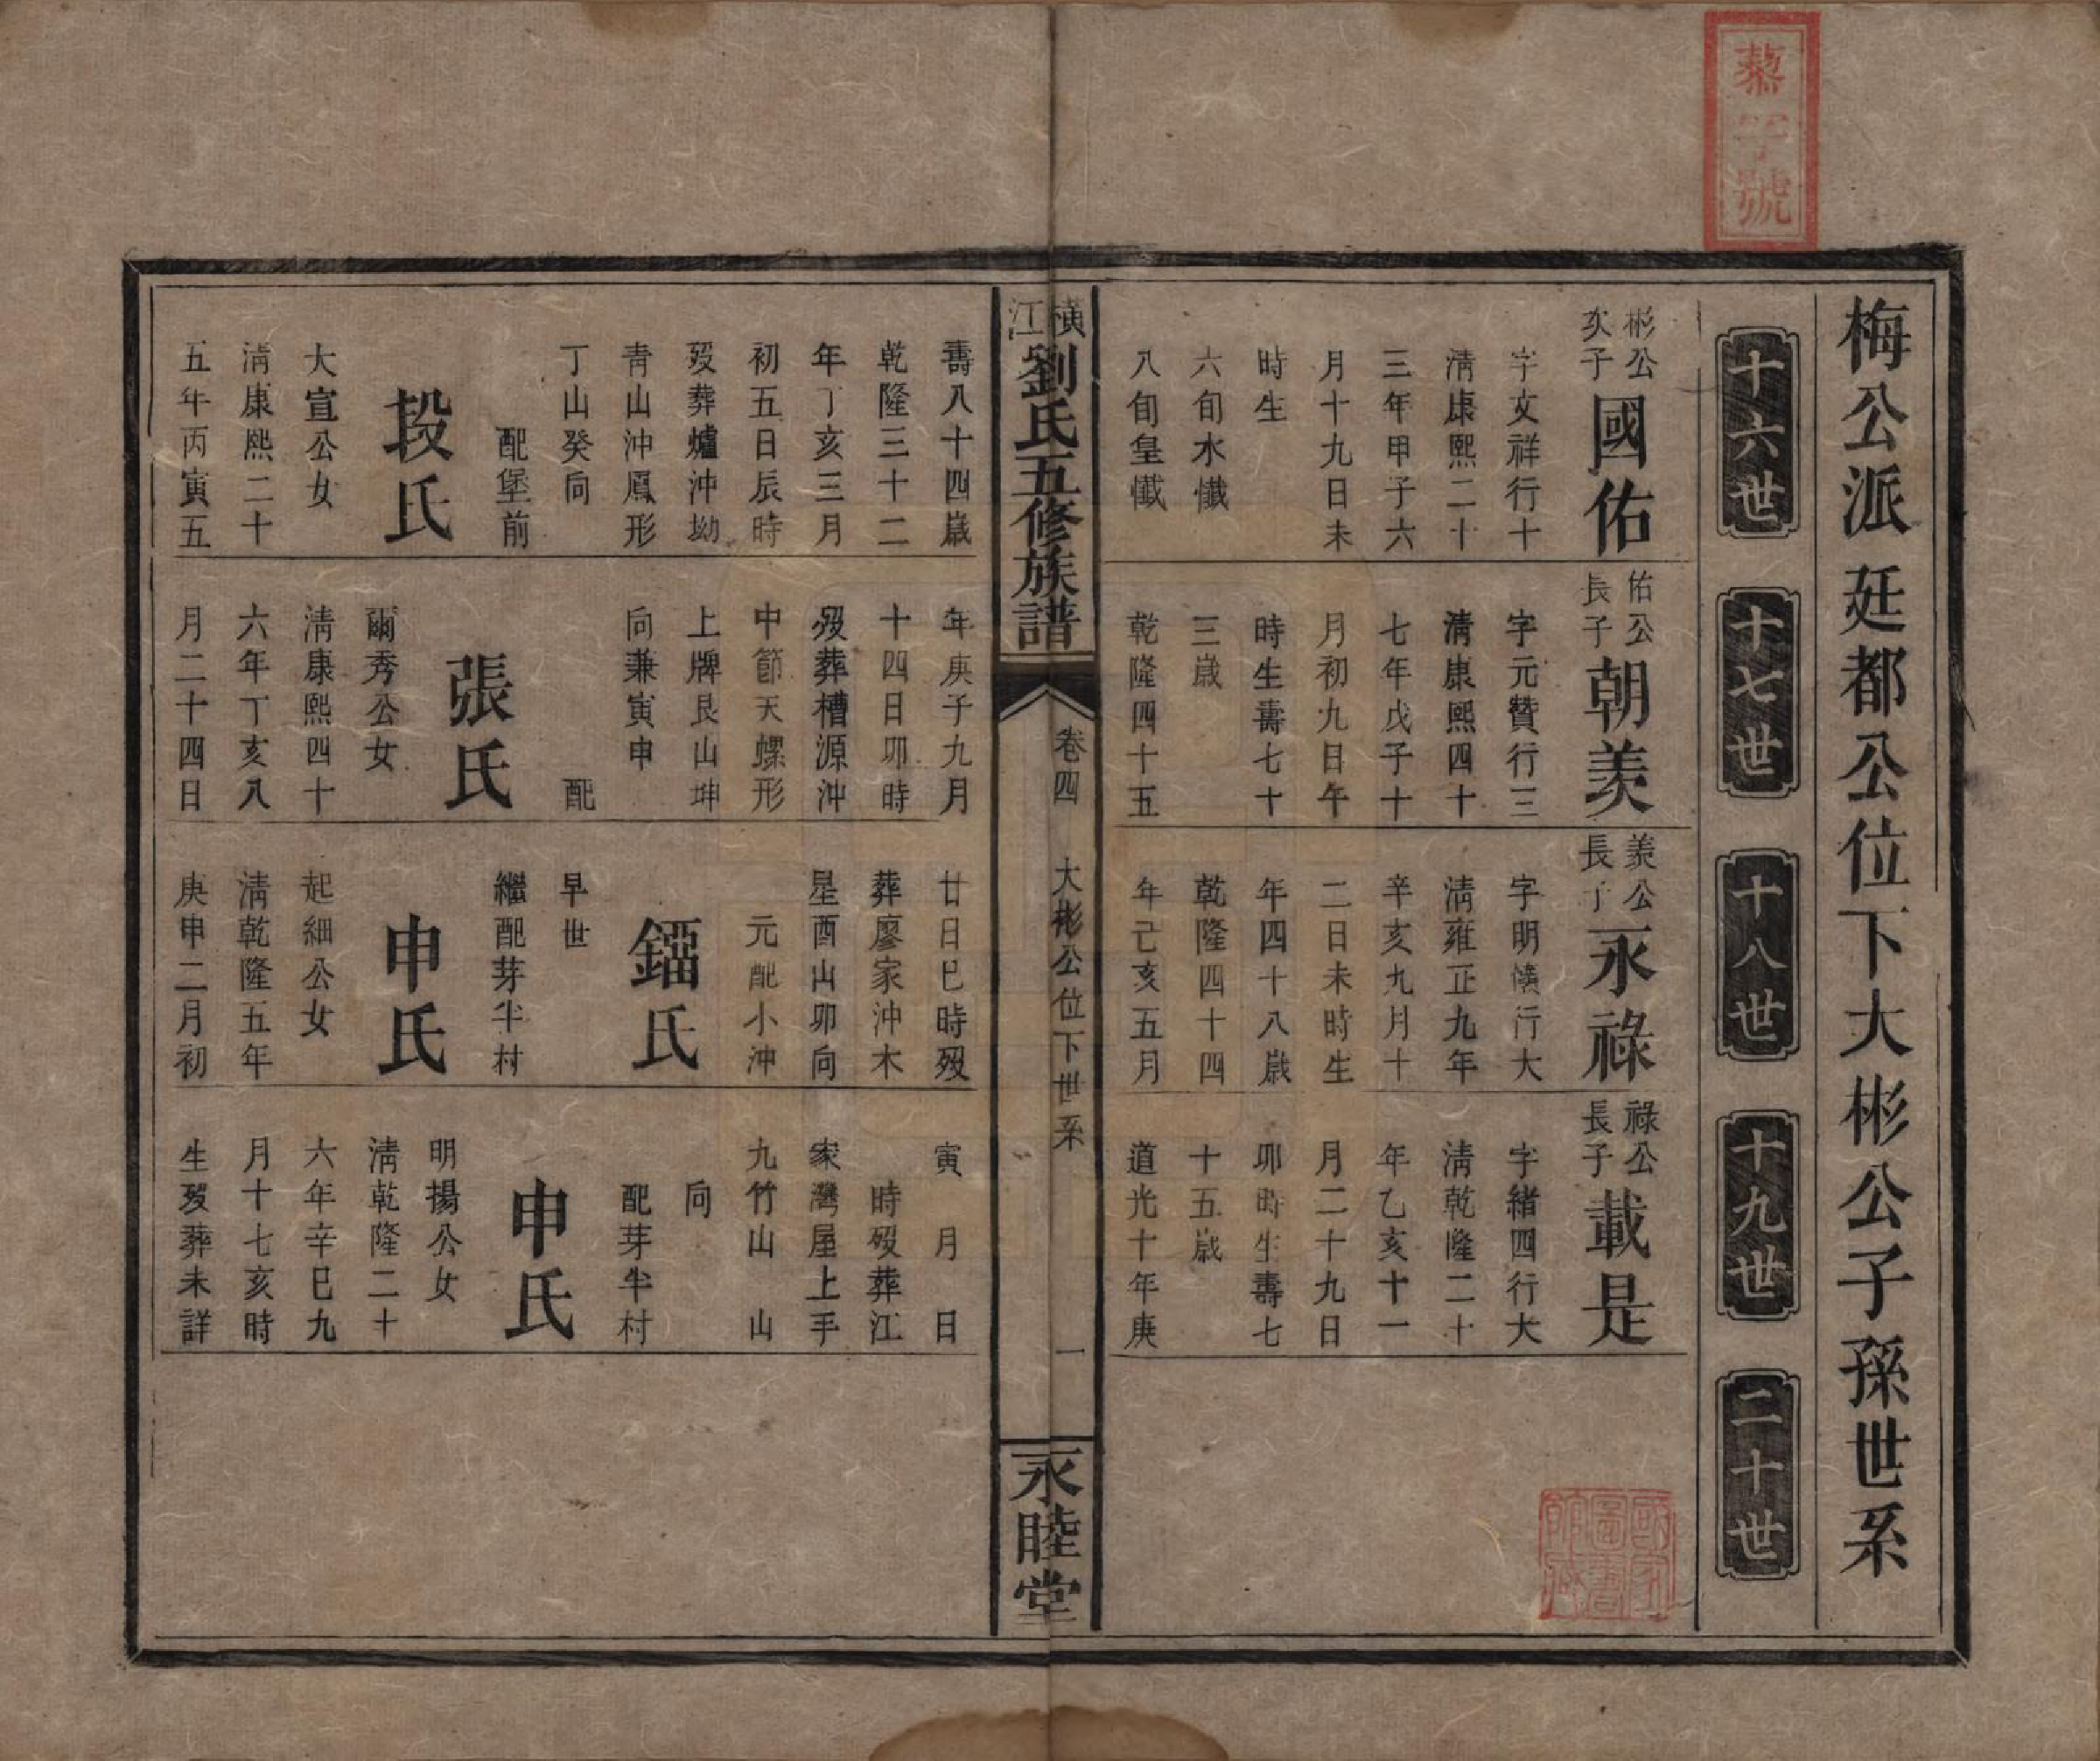 梅公派廷都公位下大彬公子孫世系
十六世
十七世
十八世
十九世
二十世
彬公
次子
國佑
字文祥行十
清康熙二十
三年甲子六
月十九日未
時生
六旬水懺
八旬皇懺
佑公
長子
朝羨
字元贊行三
清康熙四十
七年戊子十
月初九日午
時生壽七十
三歲
乾隆四十五
羨公
長子
永祿
字明 行大
清雍正九年
辛亥九月十
二日未時生
年四十八歲
乾隆四十四
年己亥五月
祿公
長子
載是
字緒四行大
清乾隆二十
年乙亥十一
月二十九日
卯時生壽七
十五歲
道光十年庚
橫江
劉氏五修族譜
卷四
大彬公位下世系
一
永睦堂
壽八十四歲
乾隆三十二
年丁亥三月
初五日辰時
歿葬爐沖坳
青山沖鳳形
丁山癸向
配堡前
段氏
大宣公女
清康熙二十
五年丙寅五
年庚子九月
十四日卯時
歿葬槽源沖
中節天螺形
上牌艮山坤
向兼寅申
配
張氏
爾秀公女
清康熙四十
六年丁亥八
月二十四日
廿日巳時歿
葬廖家沖木
星酉山卯向
元配小沖
鎦氏
早世
繼配芽半村
申氏
起細公女
清乾隆五年
庚申二月初
寅月日
時歿葬江
家灣屋上手
九竹山山
向
配芽半村
申氏
明揚公女
清乾隆二十
六年辛巳九
月十七亥時
生歿葬未詳
國家
圖書
館藏